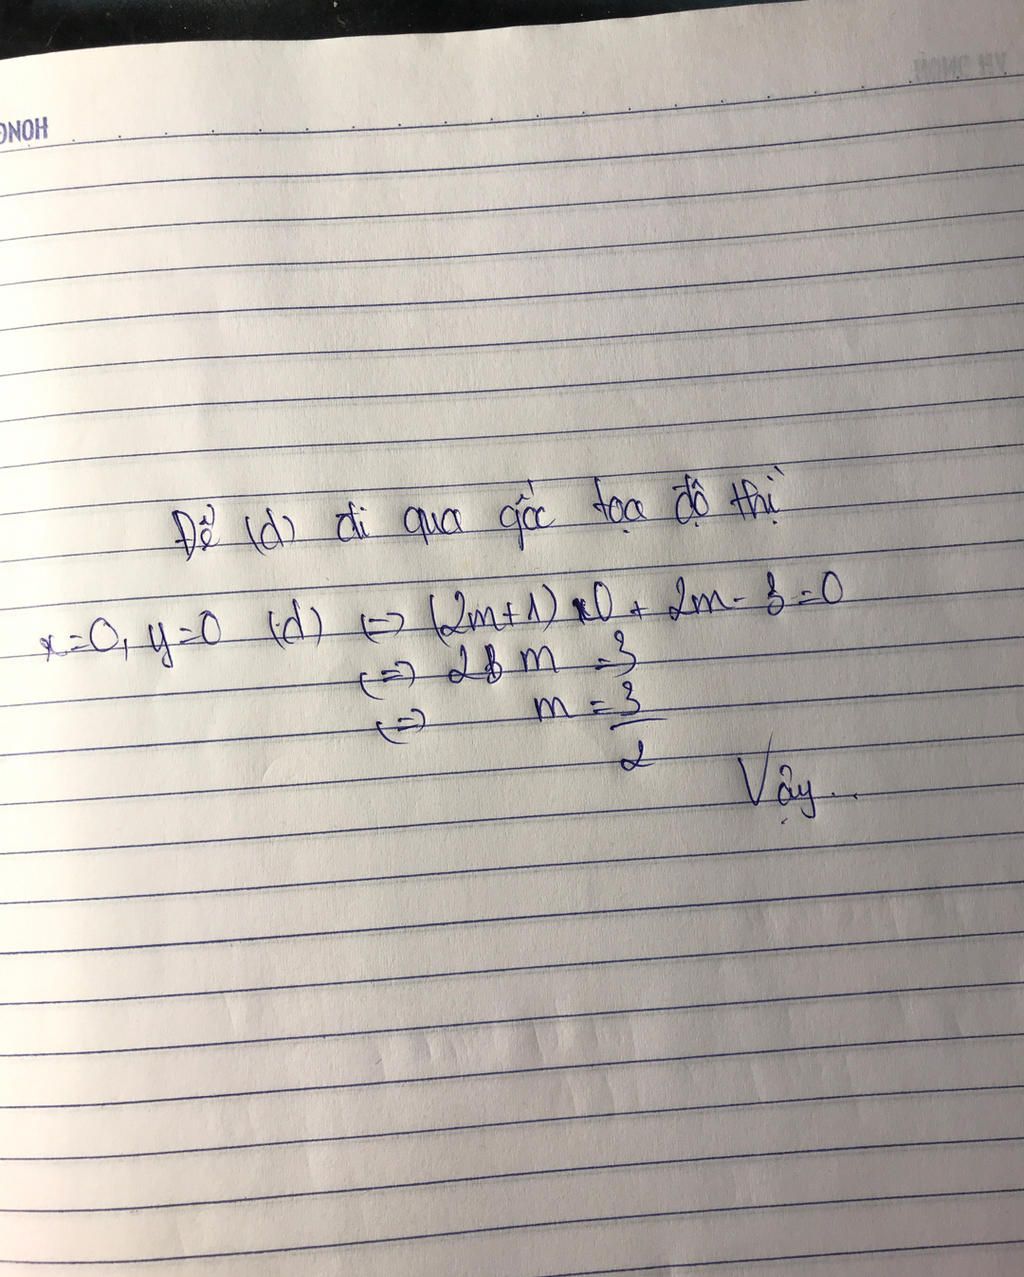 HONG
Để (d) đi qua gốc tọa độ thị
x=0, y=0 (d) (=) (2m+1) x0 + 2m - 3 = 0
(=) 2 m = 3
(=) m = 3/2
Vậy...